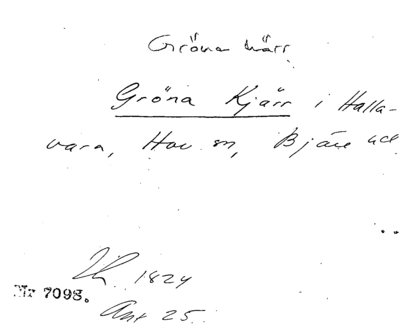 Gröna kärr
Gröna Kjärr i Halla-
vara, Hov sn, Bjäre hd
1824
Nr 7098.
Ant 25.